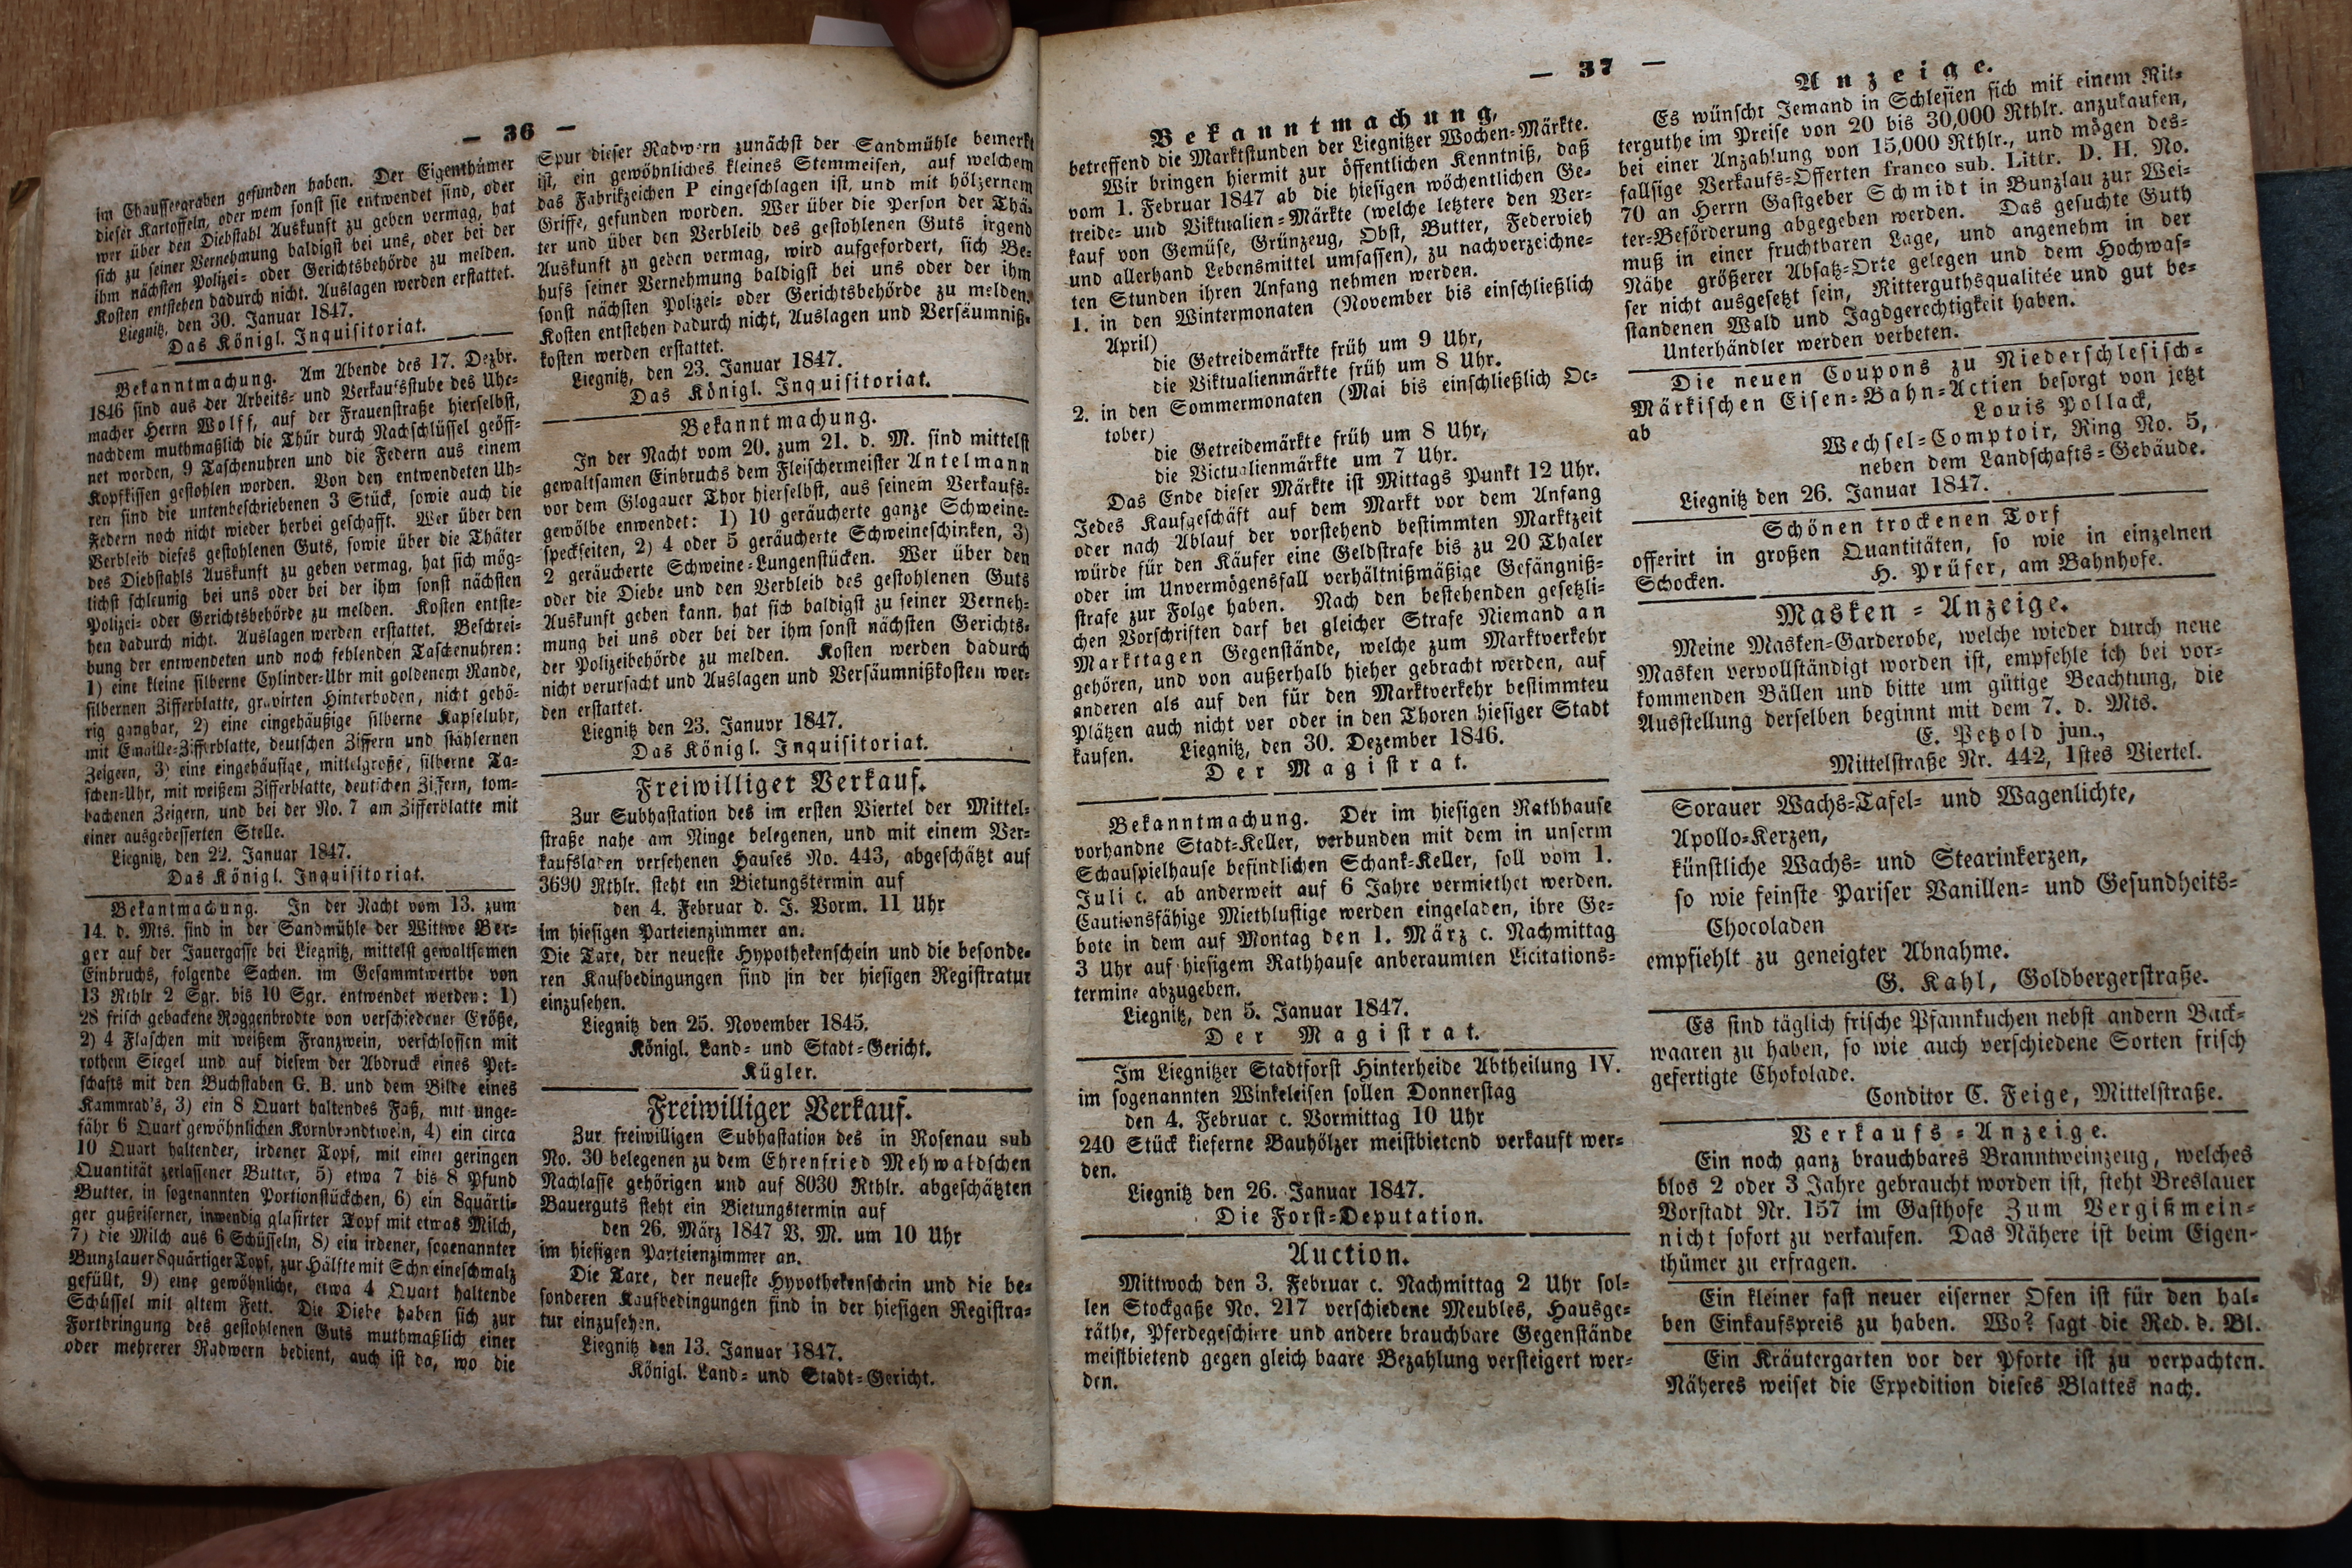 — 36 —
im Chausseegraben gefunden haben. Der Eigenthümer
dieser Kartoffeln, oder wem sonst sie entwendet sind, oder
wer über den Diebstahl Auskunft zu geben vermag, hat
sich zu seiner Vernehmung baldigst bei uns, oder bei der
ihm nächsten Polizei- oder Gerichtsbehörde zu melden.
Kosten entstehen dadurch nicht. Auslagen werden erstattet.
Liegnitz, den 30. Januar 1847.
Das Königl. Inquisitoriat.
Bekanntmachung. Am Abende des 17. Dezbr.
1846 sind aus der Arbeits- und Verkaufsstube des Uhr-
macher Herrn Wolff, auf der Frauenstraße hierselbst,
nachdem muthmaßlich die Thür durch Nachschlüssel geöff-
net worden, 9 Taschenuhren und die Federn aus einem
Kopfkissen gestohlen worden. Von den entwendeten Uh-
ren sind die untenbeschriebenen 3 Stück, sowie auch die
Federn noch nicht wieder herbei geschafft. Wer über den
Verbleib dieses gestohlenen Guts, sowie über die Thäter
des Diebstahls Auskunft zu geben vermag, hat sich mög-
lichst schleunig bei uns oder bei der ihm sonst nächsten
Polizei- oder Gerichtsbehörde zu melden. Kosten entste-
hen dadurch nicht. Auslagen werden erstattet. Beschrei-
bung der entwendeten und noch fehlenden Taschenuhren:
1) eine kleine silberne Cylinder-Uhr mit goldenem Rande,
silbernen Zifferblatte, gravirten Hinterboden, nicht gehö-
rig gangbar, 2) eine eingehäußige silberne Kapseluhr,
mit Emaille-Zifferblatte, deutschen Ziffern und stählernen
Zeigern, 3) eine eingehäusige, mittelgroße, silberne Ta-
schen-Uhr, mit weißem Zifferblatte, deutschen Ziffern, tom-
bachenen Zeigern, und bei der No. 7 am Zifferblatte mit
einer ausgebesserten Stelle.
Liegnitz, den 22. Januar 1847.
Das Königl. Inquisitoriat.
Bekantmachung. In der Nacht vom 13. zum
14. d. Mts. sind in der Sandmühle der Wittwe Ber-
ger auf der Jauergasse bei Liegnitz, mittelst gewaltsamen
Einbruchs, folgende Sachen. im Gesammtwerthe von
13 Rthlr 2 Sgr. bis 10 Sgr. entwendet werden: 1)
28 frisch gebackene Roggenbrodte von verschiedener Größe,
2) 4 Flaschen mit weißem Franzwein, verschlossen mit
rothem Siegel und auf diesem der Abdruck eines Pet-
schafts mit den Buchstaben G. B. und dem Bilde eines
Kammrad's, 3) ein 8 Quart haltendes Faß, mit unge-
fähr 6 Quart gewöhnlichen Kornbrandtwein, 4) ein circa
10 Quart haltender, irdener Topf, mit einer geringen
Quantität zerlassener Butter, 5) etwa 7 bis 8 Pfund
Butter, in sogenannten Portionstückchen, 6) ein 8quärti-
ger gußeiserner, inwendig glasirter Topf mit etwas Milch,
7) die Milch aus 6 Schüsseln, 8) ein irdener, sogenannter
Bunzlauer 8quärtiger Topf, zur Hälfte mit Schweineschmalz
gefüllt, 9) eine gewöhnliche, etwa 4 Quart haltende
Schüssel mit altem Fett. Die Diebe haben sich zur
Fortbringung des gestohlenen Guts muthmaßlich einer
oder mehrerer Radwern bedient, auch ist da, wo die
Spur dieser Radwern zunächst der Sandmühle bemerkt
ist, ein gewöhnliches kleines Stemmeisen, auf welchem
das Fabrikzeichen P eingeschlagen ist, und mit hölzernem
Griffe, gefunden worden. Wer über die Person der Thä-
ter und über den Verbleib des gestohlenen Guts irgend
Auskunft zn geben vermag, wird aufgefordert, sich Be-
hufs seiner Vernehmung baldigst bei uns oder der ihm
sonst nächsten Polizei- oder Gerichtsbehörde zu melden.
Kosten entstehen dadurch nicht, Auslagen und Versäumniß-
kosten werden erstattet.
Liegnitz, den 23. Januar 1847.
Das Königl. Inquisitoriat.
Bekanntmachung.
In der Nacht vom 20. zum 21. d. M. sind mittelst
gewaltsamen Einbruchs dem Fleischermeister Antelmann
vor dem Glogauer Thor hierselbst, aus seinem Verkaufs-
gewölbe enwendet: 1) 10 geräucherte ganze Schweine-
speckseiten, 2) 4 oder 5 geräucherte Schweineschinken, 3)
2 geräucherte Schweine-Lungenstücken. Wer über den
oder die Diebe und den Verbleib des gestohlenen Guts
Auskunft geben kann. hat sich baldigst zu seiner Verneh-
mung bei uns oder bei der ihm sonst nächsten Gerichts-
der Polizeibehörde zu melden. Kosten werden dadurch
nicht verursacht und Auslagen und Versäumnißkosten wer-
den erstattet.
Liegnitz den 23. Januvr 1847.
Das Königl. Inquisitoriat.
Freiwilliger Verkauf.
Zur Subhastation des im ersten Viertel der Mittel-
straße nahe am Ringe belegenen, und mit einem Ver-
kaufsladen versehenen Hauses No. 443, abgeschätzt auf
3690 Rthlr. steht ein Bietungstermin auf
den 4. Februar d. J. Vorm. 11 Uhr
im hiesigen Parteienzimmer an.
Die Taxe, der neueste Hypothekenschein und die besonde-
ren Kaufbedingungen sind in der hiesigen Registratur
einzusehen.
Liegnitz den 25. November 1845.
Königl. Land- und Stadt-Gericht.
Kügler.
Freiwilliger Verkauf.
Zur freiwilligen Subhastation des in Rosenau sub
No. 30 belegenen zu dem Ehrenfried Mehwaldschen
Nachlasse gehörigen und auf 8030 Rthlr. abgeschätzten
Bauerguts steht ein Bietungstermin auf
den 26. März 1847 V. M. um 10 Uhr
im hiesigen Parteienzimmer an.
Die Taxe, der neueste Hypothekenschein und die be-
sonderen Kaufbedingungen sind in der hiesigen Registra-
tur einzusehen.
Liegnitz den 13. Januar 1847.
Königl. Land- und Stadt-Gericht.
— 37 —
Bekanntmachung,
betreffend die Marktstunden der Liegnitzer Wochen-Märkte.
Wir bringen hiermit zur öffentlichen Kenntniß, daß
vom 1. Februar 1847 ab die hiesigen wöchentlichen Ge-
treide- und Viktualien-Märkte (welche letztere den Ver-
kauf von Gemüse, Grünzeug, Obst, Butter, Federvieh
und allerhand Lebensmittel umfassen), zu nachverzeichne-
ten Stunden ihren Anfang nehmen werden.
1. in den Wintermonaten (November bis einschließlich
April)
die Getreidemärkte früh um 9 Uhr,
die Viktualienmärkte früh um 8 Uhr.
2. in den Sommermonaten (Mai bis einschließlich Oc-
tober)
die Getreidemärkte früh um 8 Uhr,
die Victualienmärkte um 7 Uhr.
Das Ende dieser Märkte ist Mittags Punkt 12 Uhr.
Jedes Kaufgeschäft auf dem Markt vor dem Anfang
oder nach Ablauf der vorstehend bestimmten Marktzeit
würde für den Käufer eine Geldstrafe bis zu 20 Thaler
oder im Unvermögensfall verhältnißmäßige Gefängniß-
strafe zur Folge haben. Nach den bestehenden gesetzli-
chen Vorschriften darf bei gleicher Strafe Niemand an
Markttagen Gegenstände, welche zum Marktverkehr
gehören, und von außerhalb hieher gebracht werden, auf
anderen als auf den für den Marktverkehr bestimmteu
Plätzen auch nicht ver oder in den Thoren hiesiger Stadt
kaufen. Liegnitz, den 30. Dezember 1846.
Der Magistrat.
Bekanntmachung. Der im hiesigen Rathhause
vorhandne Stadt-Keller, verbunden mit dem in unserm
Schauspielhause befindlichen Schank-Keller, soll vom 1.
Juli c. ab anderweit auf 6 Jahre vermiethet werden.
Cautionsfähige Miethlustige werden eingeladen, ihre Ge-
bote in dem auf Montag den 1. März c. Nachmittag
3 Uhr auf hiesigem Rathhause anberaumten Licitations-
termine abzugeben.
Liegnitz, den 5. Januar 1847.
Der Magistrat.
Im Liegnitzer Stadtforst Hinterheide Abtheilung IV.
im sogenannten Winkeleisen sollen Donnerstag
den 4. Februar c. Vormittag 10 Uhr
240 Stück kieferne Bauhölzer meistbietend verkauft wer-
den.
Liegnitz den 26. Januar 1847.
Die Forst-Deputation.
Auction.
Mittwoch den 3. Februar c. Nachmittag 2 Uhr sol-
len Stockgaße No. 217 verschiedene Meubles, Hausge-
räthe, Pferdegeschirre und andere brauchbare Gegenstände
meistbietend gegen gleich baare Bezahlung versteigert wer-
den.
Anzeige.
Es wünscht Jemand in Schlesien sich mit einem Rit-
terguthe im Preise von 20 bis 30,000 Rthlr. anzukaufen,
bei einer Anzahlung von 15,000 Rthlr., und mögen des-
fallsige Verkaufs-Offerten franco sub. Littr. D. H. No.
70 an Herrn Gastgeber Schmidt in Bunzlau zur Wei-
ter-Beförderung abgegeben werden. Das gesuchte Guth
muß in einer fruchtbaren Lage, und angenehm in der
Nähe größerer Absatz-Orte gelegen und dem Hochwas-
ser nicht ausgesetzt sein, Ritterguthsqualitée und gut be-
standenen Wald und Jagdgerechtigkeit haben.
Unterhändler werden verbeten.
Die neuen Coupons zu Niederschlesisch-
Märkischen Eisen-Bahn-Actien besorgt von jetzt
ab Louis Pollack,
Wechsel-Comptoir, Ring No. 5,
neben dem Landschafts-Gebäude.
Liegnitz den 26. Januar 1847.
Schönen trockenen Torf
offerirt in großen Quantitäten, so wie in einzelnen
Schocken. H. Prüfer, am Bahnhofe.
Masken-Anzeige.
Meine Masken-Garderobe, welche wieder durch neue
Masken vervollständigt worden ist, empfehle ich bei vor-
kommenden Bällen und bitte um gütige Beachtung, die
Ausstellung derselben beginnt mit dem 7. d. Mts.
E. Petzold jun.,
Mittelstraße Nr. 442, 1stes Viertel.
Sorauer Wachs-Tafel- und Wagenlichte,
Apollo-Kerzen,
künstliche Wachs- und Stearinkerzen,
so wie feinste Pariser Vanillen- und Gesundheits-
Chocoladen
empfiehlt zu geneigter Abnahme.
G. Kahl, Goldbergerstraße.
Es sind täglich frische Pfannkuchen nebst andern Back-
waaren zu haben, so wie auch verschiedene Sorten frisch
gefertigte Chokolade.
Conditor C. Feige, Mittelstraße.
Verkaufs-Anzeige.
Ein noch ganz brauchbares Branntweinzeug, welches
blos 2 oder 3 Jahre gebraucht worden ist, steht Breslauer
Vorstadt Nr. 157 im Gasthofe Zum Vergißmein-
nicht sofort zu verkaufen. Das Nähere ist beim Eigen-
thümer zu erfragen.
Ein kleiner fast neuer eiserner Ofen ist für den hal-
ben Einkaufspreis zu haben. Wo? sagt die Red. d. Bl.
Ein Kräutergarten vor der Pforte ist zu verpachten.
Näheres weiset die Expedition dieses Blattes nach.